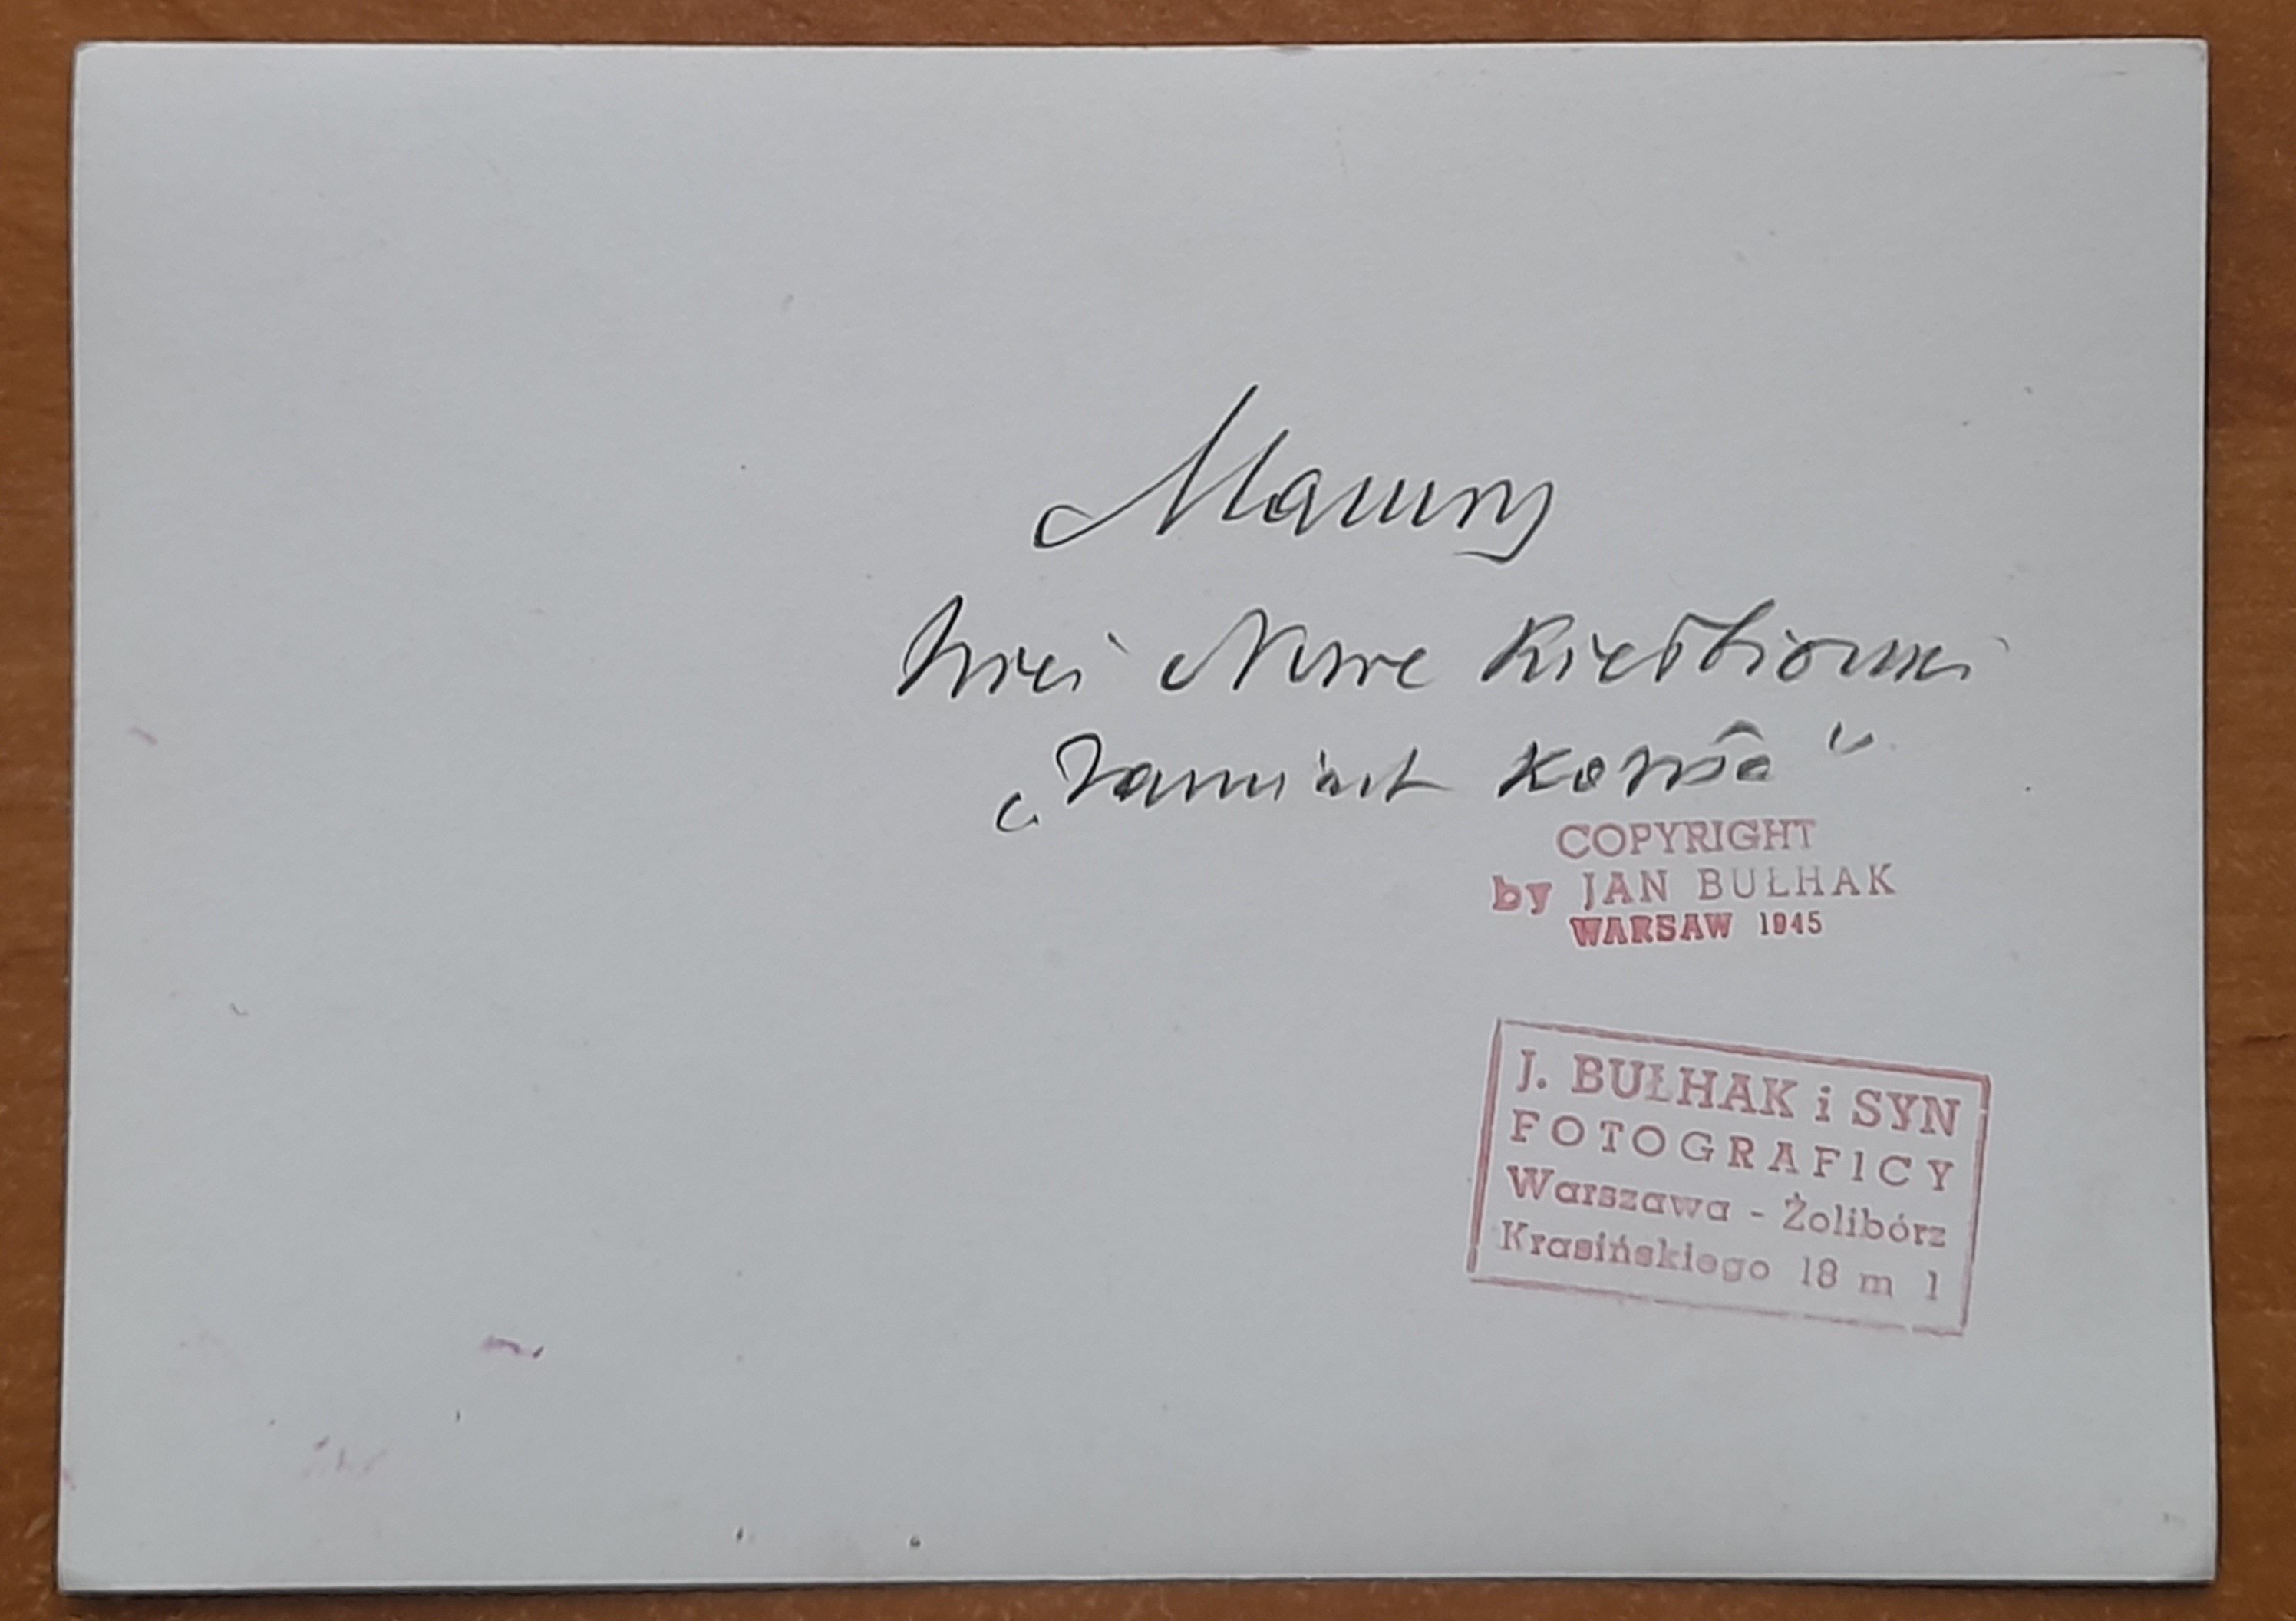 Mazury
Wieś Nowe Kiełbonki
„Zamiast konia"
COPYRIGHT
by JAN BUŁHAK
WARSAW 1945
J. BUŁHAK i SYN
FOTOGRAFICY
Warszawa - Żolibórz
Krasińskiego 18 m 1